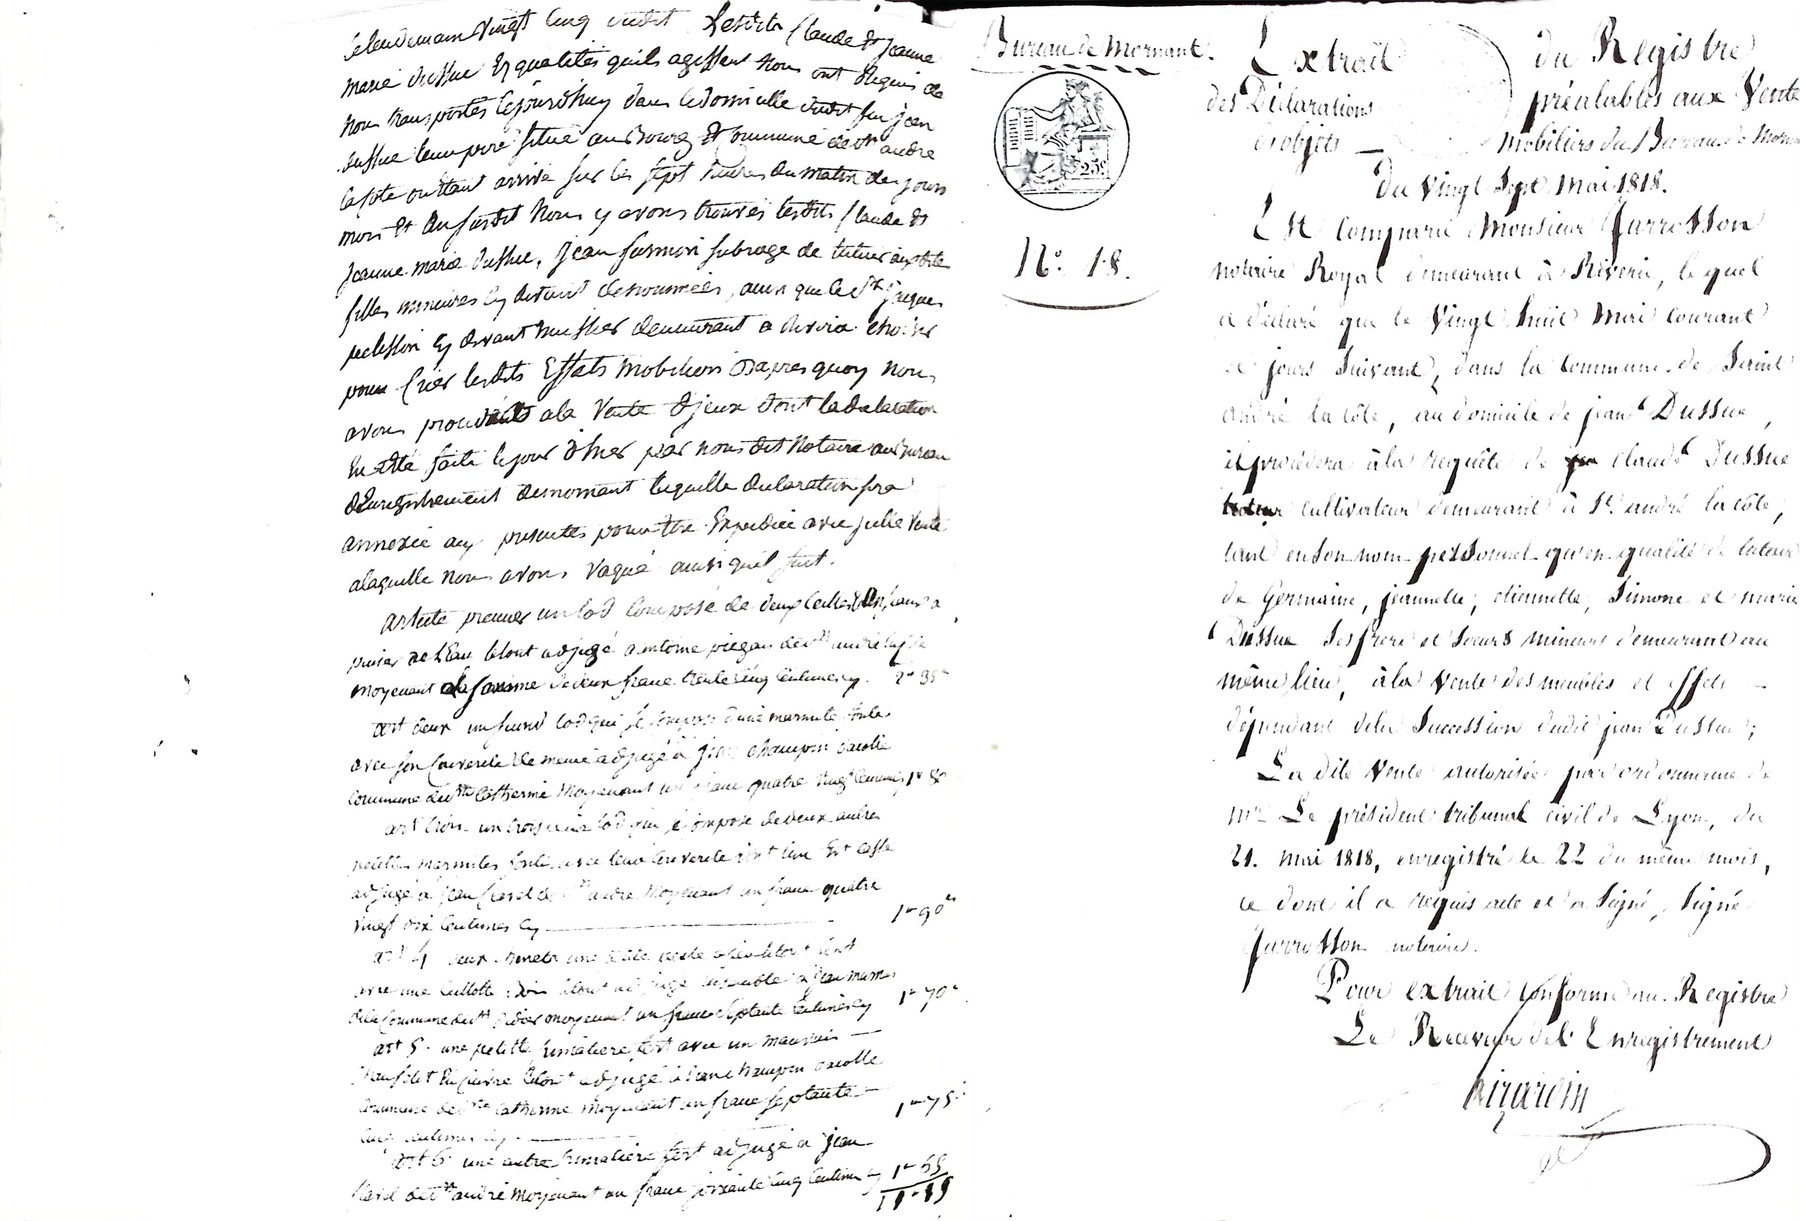 le lendemain vingt cinq dudit Lesdits Claude et Jeanne
marie dussue Es qualités qu'ils agissent Nous ont Requis de
nous transportés cejourdhuy dans le domicille dudit feu jean
dussue leur père situé au Bourg et Commune de st andré
la côte ou étant arrivé sur les sept heures du matin des jours
mois et an susdit Nous y avons trouvés lesdits Claude et
Jeanne marie dussue, Jean subrogé de tuteur auxdites
filles mineures cy devant dénommées, ainsi que le sr jaques
pelisson cy devant huissier demeurant a
pour Crier lesdits Effets mobiliers D'apres quoy nous
avons procédés a la Vente d'jceux dont la declaration
En a Eté faite le jour d'hier par nous dit Notaire au Bureau
d'Enregistrement de mornant laquelle declaration sera
annexée aux presentes pour être Expediée avec jcelle Vente
a laquelle nous avons Vaqué ainsi qu'il suit.
article premier un lod Composé de deux
puiser de l'Eau le tout adjugé a antoine de st andré la côte
moyenant la somme de deux francs trente cinq Centimes cy. 2f 35c
art deux un second lod qui se compose d'une marmite fonte
avec son Couvercle de meme adjugé à jean champin
Commune de ste Catherine moyenant un franc quatre vingt Centimes 1f 80
art trois un troisieme lod qui se compose de deux autres
petittes marmites fonte avec leur Couvercle dont l'un Est cassé
adjugé à jean de st andré moyenant un franc quatre
vingt dix Centimes cy 1f 90c
art 4 deux
avec une Cullotte le tout adjugé Ensemble a jean
de la Commune de st didier moyenant un franc septante Centimes cy 1f 70c
art 5. une petitte fert avec un mauvais
En cuivre le tout adjugé à jean champin
Commune de ste Catherine moyenant un franc septante
cinq centimes cy 1f 75c
art 6 une autre fert adjugé a jean
de st andré moyenant un franc soixante cinq Centimes cy 1f 65
Bureau de Mornant.
25c
No. 18.
Extrait du Registre
des Déclarations préalables aux Vente
d'objets Mobiliers du Bureau de Mornant
Du Vingt Sept Mai 1818.
Est Comparu Monsieur Jarrosson
notaire Royal demeurant à Riverie, lequel
a déclaré que le Vingt huit Mai courant
et jours Suivant, dans la Commune de Saint
andré la côte, au domicile de jean Dussue,
il procédera à la requête de Claude Dussue
cultivateur demeurant à St. andré la côte,
tant en son nom personnel qu'en qualité de tuteur
de Germaine, jeannette, etiennette, Simone et marie
Dussue Ses frere et Soeurs mineurs demeurant au
même lieu, à la Vente des meubles et effets
dépendant de la Succession dudit jean Dussue;
La dite Vente autorisée par ordonnance de
Mr Le président tribunal civil de Lyon, du
21. mai 1818, enregistré le 22 du même mois,
ce dont il a requis acte et a Signé, Signé
Jarrosson notaire.
Pour extrait Conforme au Registre
Le Receveur de l'Enregistrement